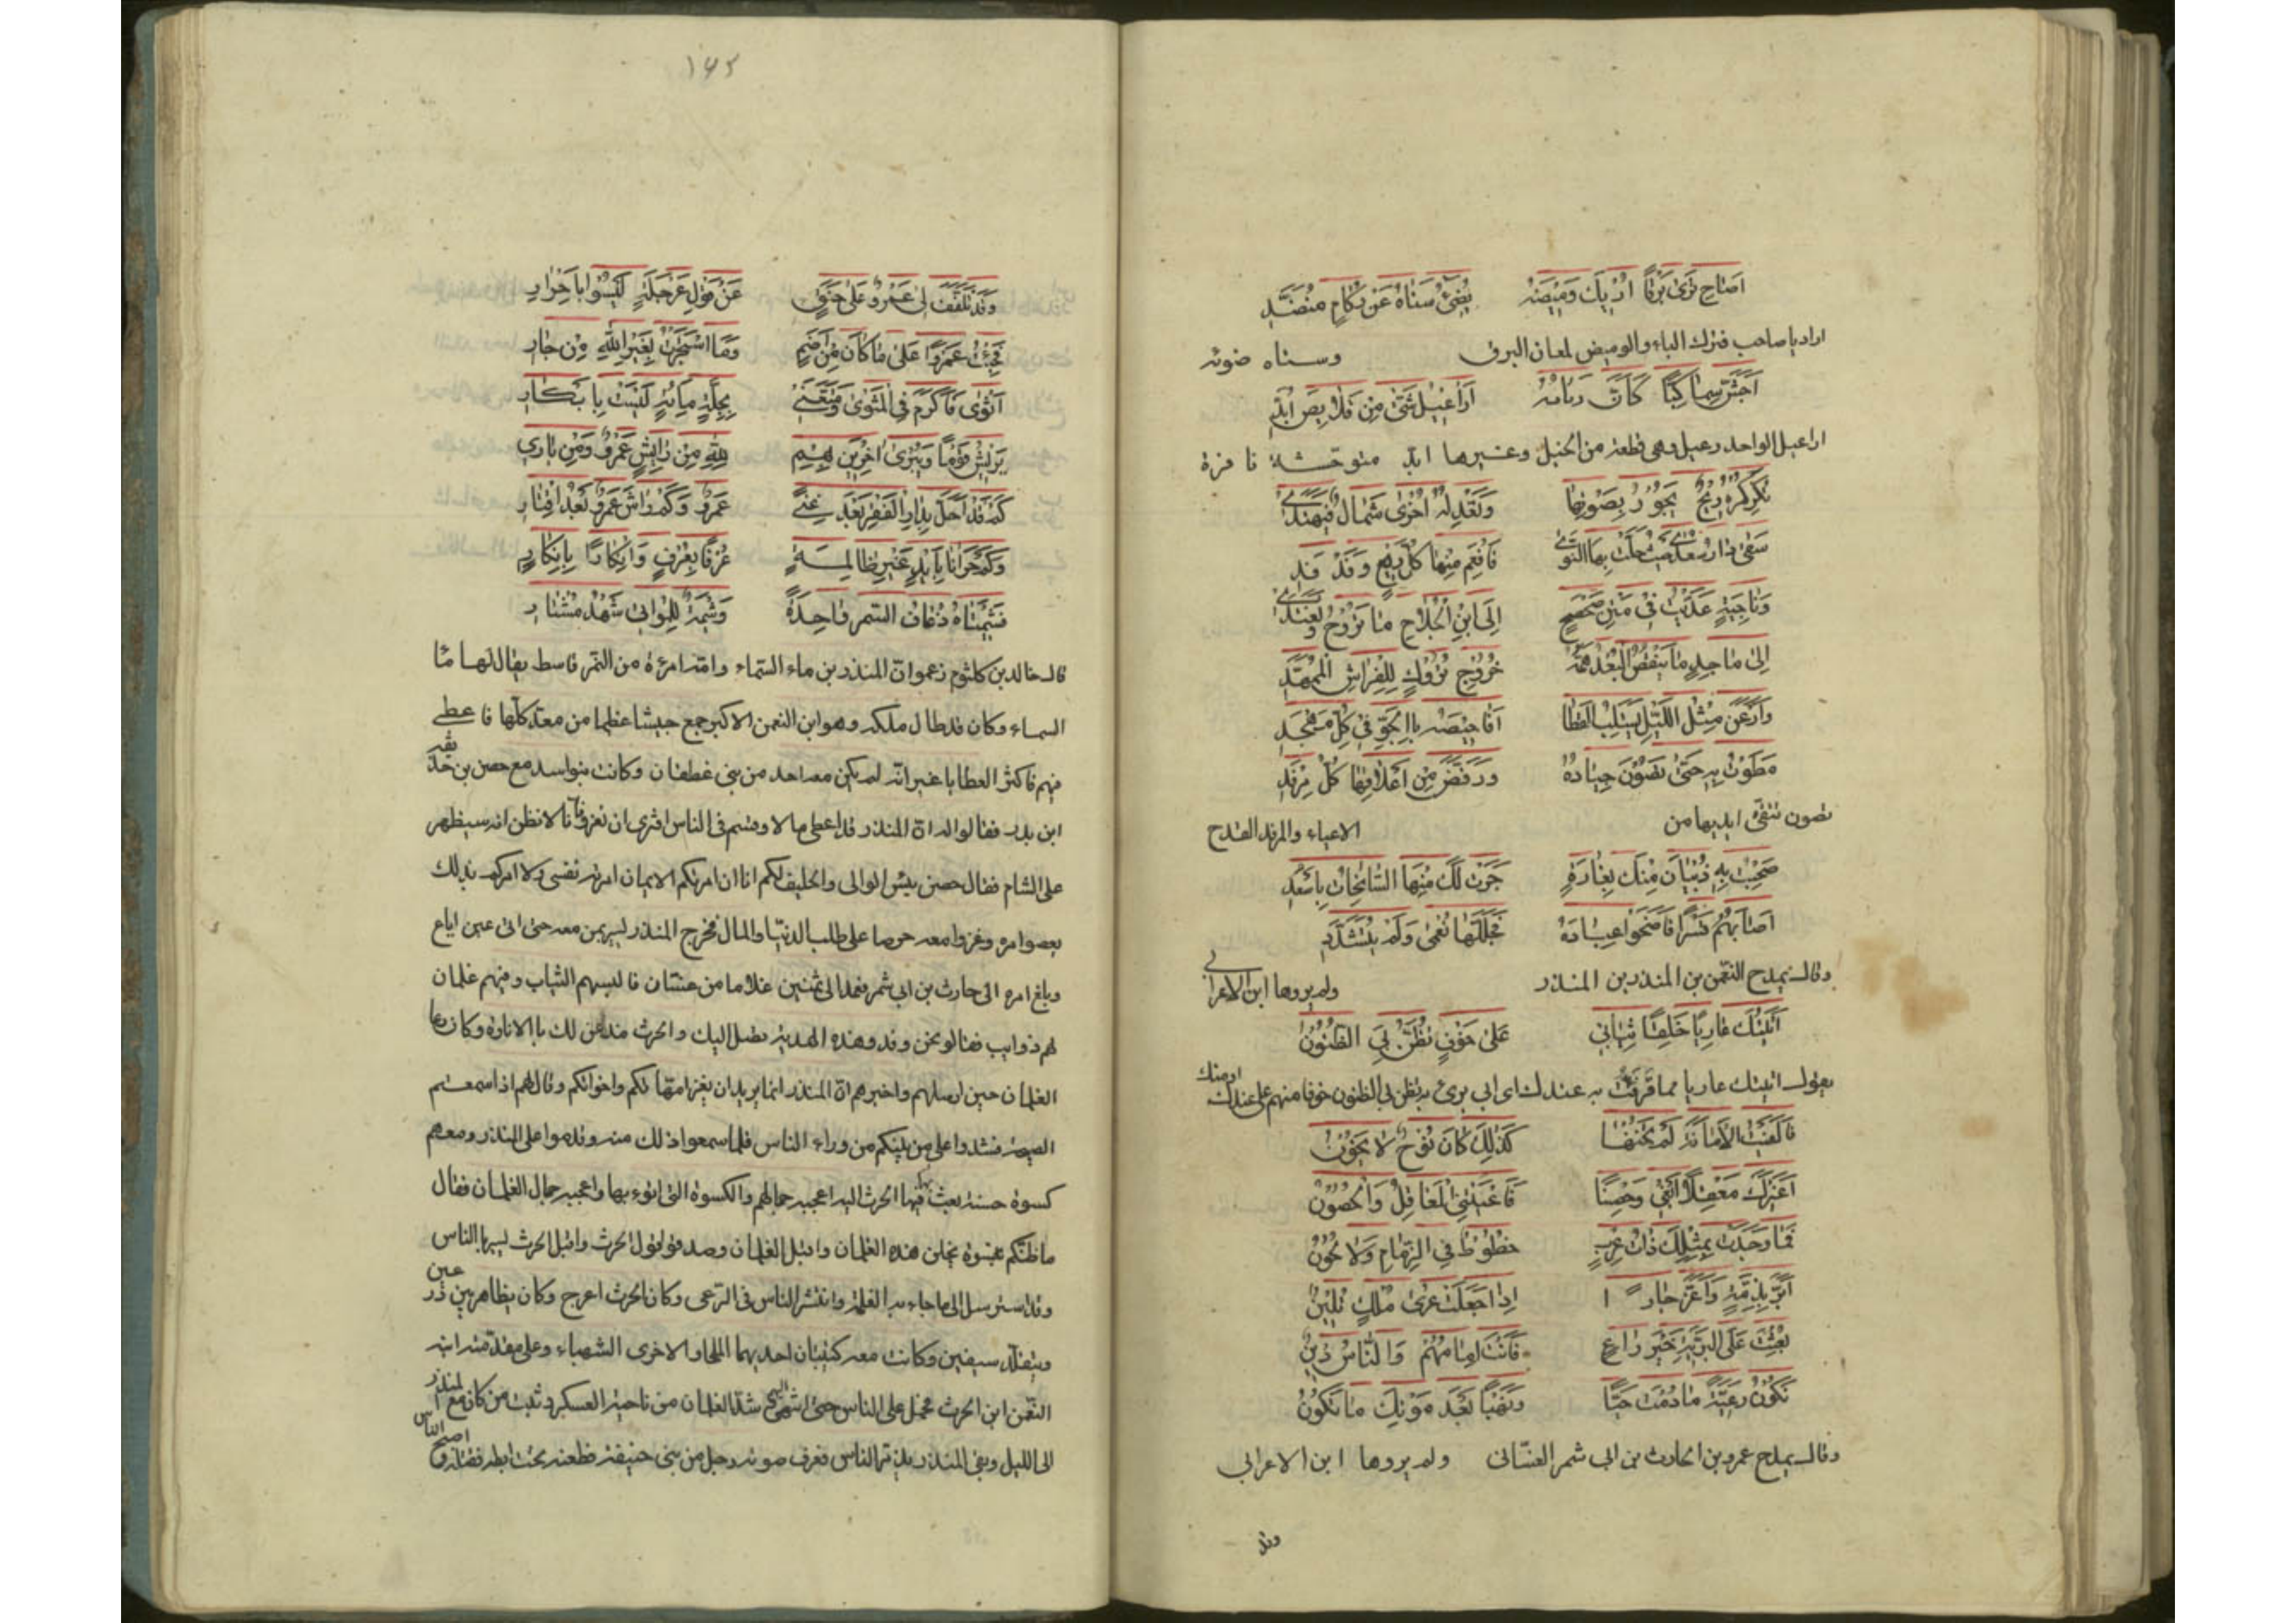 اصاح ترى برقا اريك وميضه يضيء سناه عن ركام منضد
اراد يا صاحب فترك الباء والوميض لمعان البرق وسناه ضوئه
اجش سماكيا كان ربابه اراعيل شتى من قلائص ابد
اراعيل الواحد رعيل وهي قطعة من الخيل وغيرها ابد متوحشة نافرة
تكركره ريح يجور بصوبها وتعدله اخرى شمال فيهتدي
سقى دار سعدى حيث حلت بها النوى فافعم منها كل ريع وفدفد
وناجية عديت في متن صحصح الى ابن الجلاح ما تروح وتغتدي
الى ماجد ما ينقض البعد همه خروج تروك للفراش الممهد
وارعن مثل الليل يستلب القطا افاحيصه بالجو في كل مفحص
مطوت به حتى تصون جياده ورفض من اعلافها كل مرفد
تصون تتقي ايديها من الاعياء والمرفد القدح
صحبت به ذبيان منك بغارة جرت لك منها السانحات باسعد
اصابهم قسرا فاضحوا عباده فجللها نعمى ولم يتشدد
وقال يمدح النعمن بن المنذر بن المنذر ولم يروها ابن الاعرابي
اتيتك عاريا خلقا ثيابي على خوف تظن بي الظنون
يقول اتيتك عاريا مما قرفت به عندك اي اني بريء يظن بي الظنون خوفا منهم علي عندك او منك
فالفيت الامانة لم تخنها كذلك كان نوح لا يخون
اعترك معقلا ابغي وحصنا فاعيتني المعاقل والحصون
فما وخدت بمثلك ذات غرب حطوط في الزمام ولا لجون
ابر بذمة واعز جارا اذا جعلت عرى ملك تلين
بعثت على البرية خير راع فانت امامهم والناس دين
نكون رعية ما دمت حيا ونهبا بعد موتك ما نكون
وقال يمدح عمرو بن الحارث بن ابي شمر الغساني ولم يروها ابن الاعرابي
وقد
١٤٣
وقد تلفف لي عمرو على حنق عن قول عرجلة ليسوا باخرار
فجئت عمروا على ما كان من اضم وما استجرت بغير الله من جار
اثوى فاكرم في المثوى ومتعني بجلة مائة ليست بابكار
يريش قوما ويبري اخرين بهم لله من رايش عمرو ومن باري
كم قد احل بدار الفقر بعد غنى عمرو وكم راش عمرو بعد اقتار
وكم جزانا بايد غير ظالمة عرفا بعرف وانكارا بانكار
شيمتاه ذعاف السم واحدة وشيمة للمواتي شهد مشتار
قال خالد بن كلثوم زعموا ان المنذر بن ماء السماء وامه امرءة من النمر قاسط يقال لها ما
السماء وكان قد طال ملكه وهو ابن النعمن الاكبر جمع جيشا عظيما من معد كلها فاعطى
فيهم فاكثر العطايا غير انه لم يكن معه احد من بني غطفان وكانت بنو اسد مع حصن بن حذيفة
ابن بدر فقالوا له ان المنذر قد اعطى مالا وقسم في الناس افترى ان نغزو فانا لا نظن انه سيظهر
على الشام فقال حصن بئس الوالي والحليف لكم انا ان امرتكم الا بما امرت به نفسي ولا امركم بذلك
بعصوا امره وغزوا معه حرصا على طلب الدنيا والمال فخرج المنذر ليسر بمن معه حتى اتى عين اباغ
وبلغ امره الى حارث بن ابي شمر فعمد الى ثمنين غلاما من غسان فالبسهم الثياب وفيهم غلمان
لهم ذوايب فقالو نحن وفد وهذه الهدية تصل اليك والحرث مذعن لك بالاتاوة وكان دعا
الغلمان حين ارسلهم واخبرهم ان المنذر انما يريد ان يغير امهاتكم واخواتكم وقال لهم اذا سمعتم
الصيحة فشدوا على من يليكم من وراء الناس فلما سمعوا ذلك منه وقدموا على المنذر ومعهم
كسوة حسنة بعث فيها الحرث اليه اعجبه جمالهم والكسوة التي اتوه بها واعجبه جمال الغلمان فقال
ما ظنكم بنسوة نجلن هذه الغلمان واقبل الغلمان وصدقوا قول الحرث واقبل الحرث ليسير بالناس
وقد استرسل الى ما جاء به الغلمة وانتشر الناس في الرعى وكان الحرث اعرج وكان يظاهر بين درعين
ويتقلد سيفين وكانت معه كتيبتان احديهما الملحا والاخرى الشهباء وعلى مقدمته ابنه
النعمن ابن الحرث فحمل على الناس حتى انتهى اليه شد الغلمان من ناحية العسكر وثبت من كان مع المنذر
الى الليل وبقي المنذر يذمر الناس فعرف صوته رجل من بني حنيفة فطعنه تحت ابطه فقتله واصبح الناس